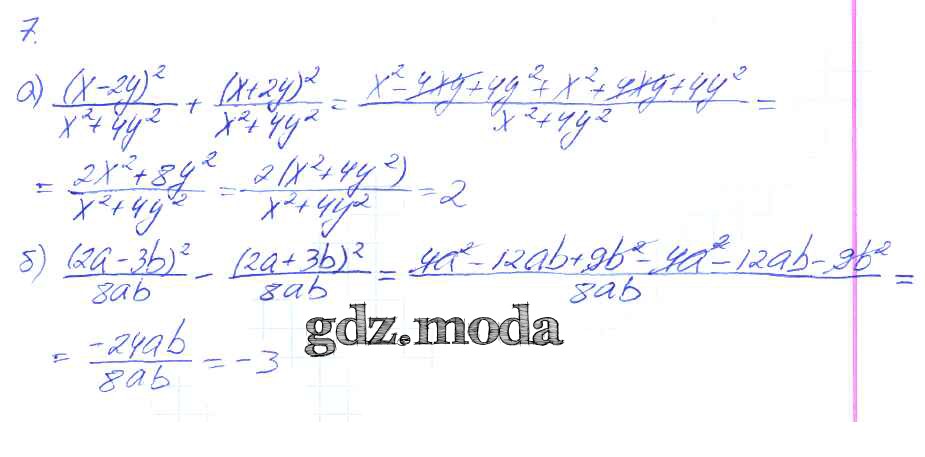 7.
а) (x-2y)²/x²+4y² + (x+2y)²/x²+4y² = x²-4xy+4y²+x²+4xy+4y²/x²+4y² =
= 2x²+8y²/x²+4y² = 2(x²+4y²)/x²+4y² = 2
б) (2a-3b)²/8ab - (2a+3b)²/8ab = 4a²-12ab+9b²-4a²-12ab-9b²/8ab =
gdz.moda
= -24ab/8ab = -3